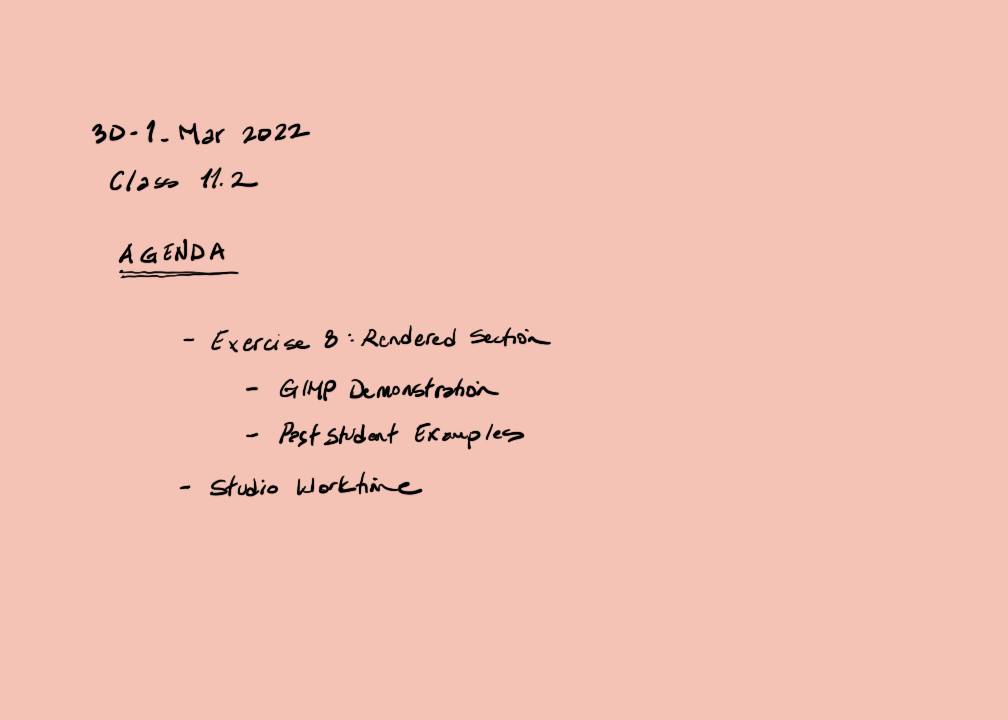 30-1_Mar 2022
Class 11.2
AGENDA
- Exercise 8: Rendered Section
- GIMP Demonstration
- Past Student Examples
- Studio Worktime